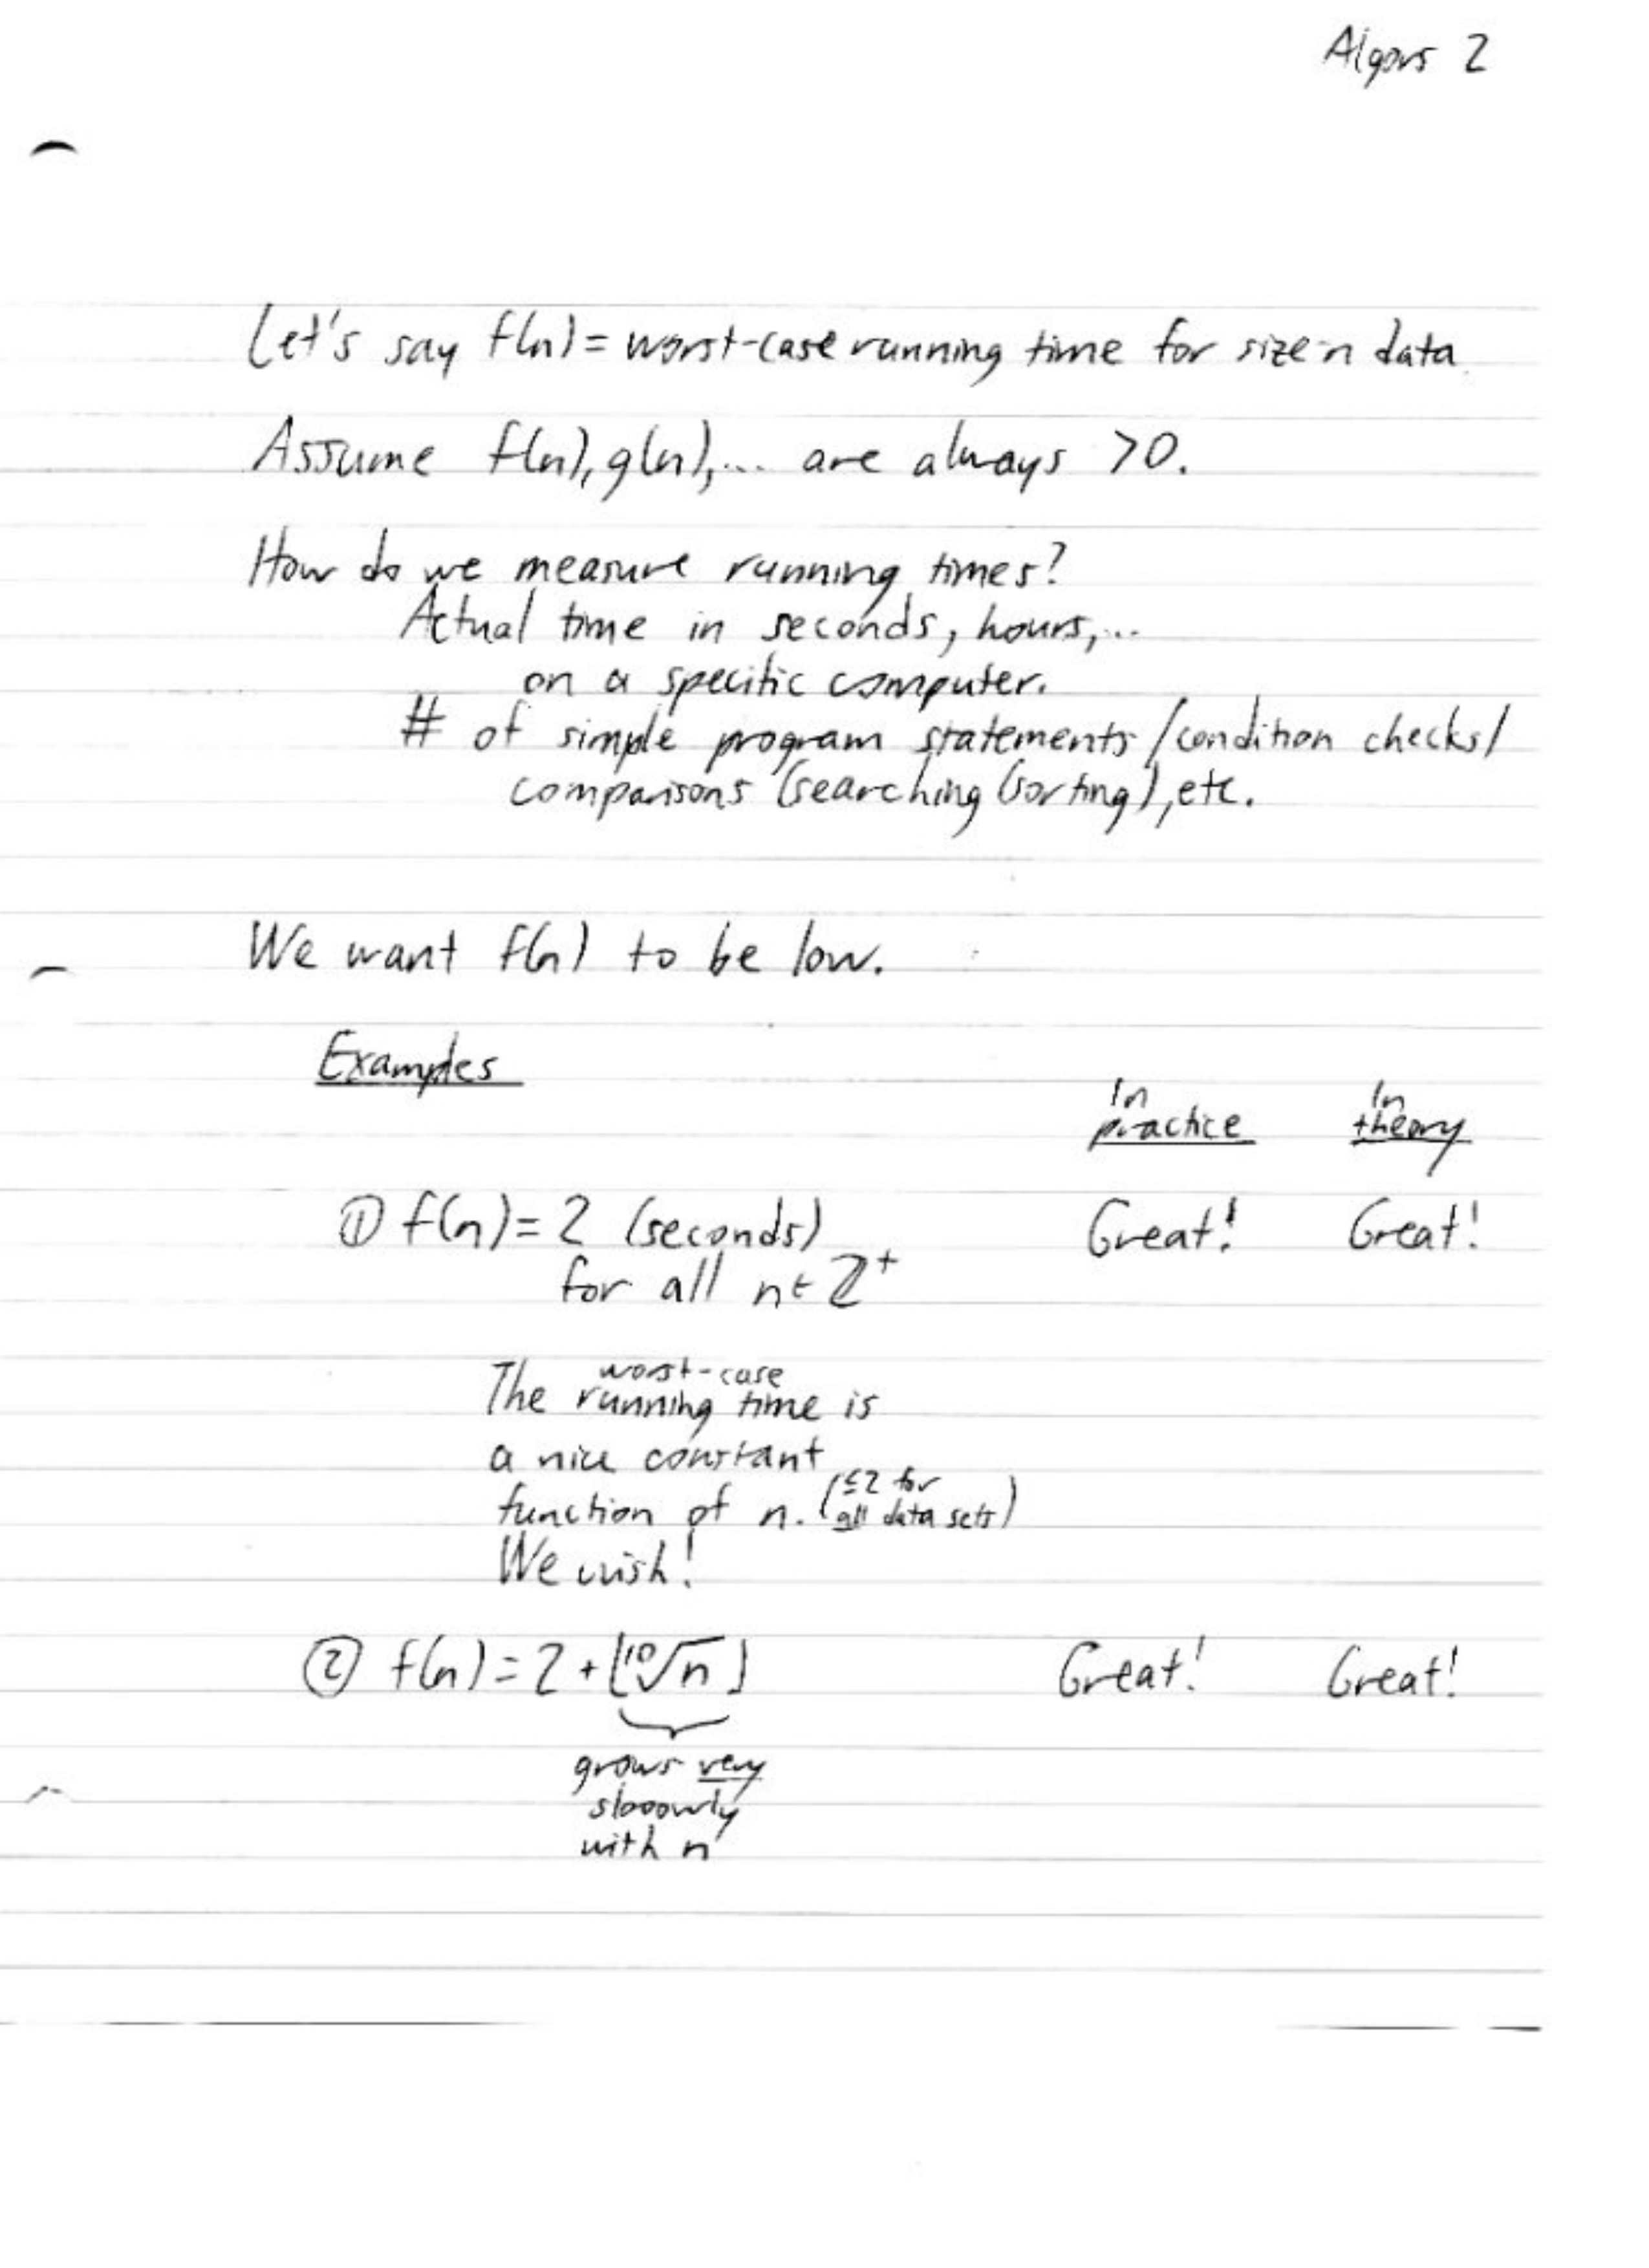 Algors 2
Let's say f(n) = worst-case running time for size-n data.
Assume f(n), g(n), ... are always >0.
How do we measure running times?
Actual time in seconds, hours, ...
on a specific computer.
# of simple program statements/condition checks/
comparisons (searching/sorting), etc.
We want f(n) to be low.
Examples
In practice In theory
① f(n) = 2 (seconds) Great! Great!
for all n ∈ ℤ⁺
worst-case
The running time is
a nice constant
function of n. (≤2 for all data sets)
We wish!
② f(n) = 2 + ⌊¹⁰√n⌋ Great! Great!
grows very
slooowly
with n